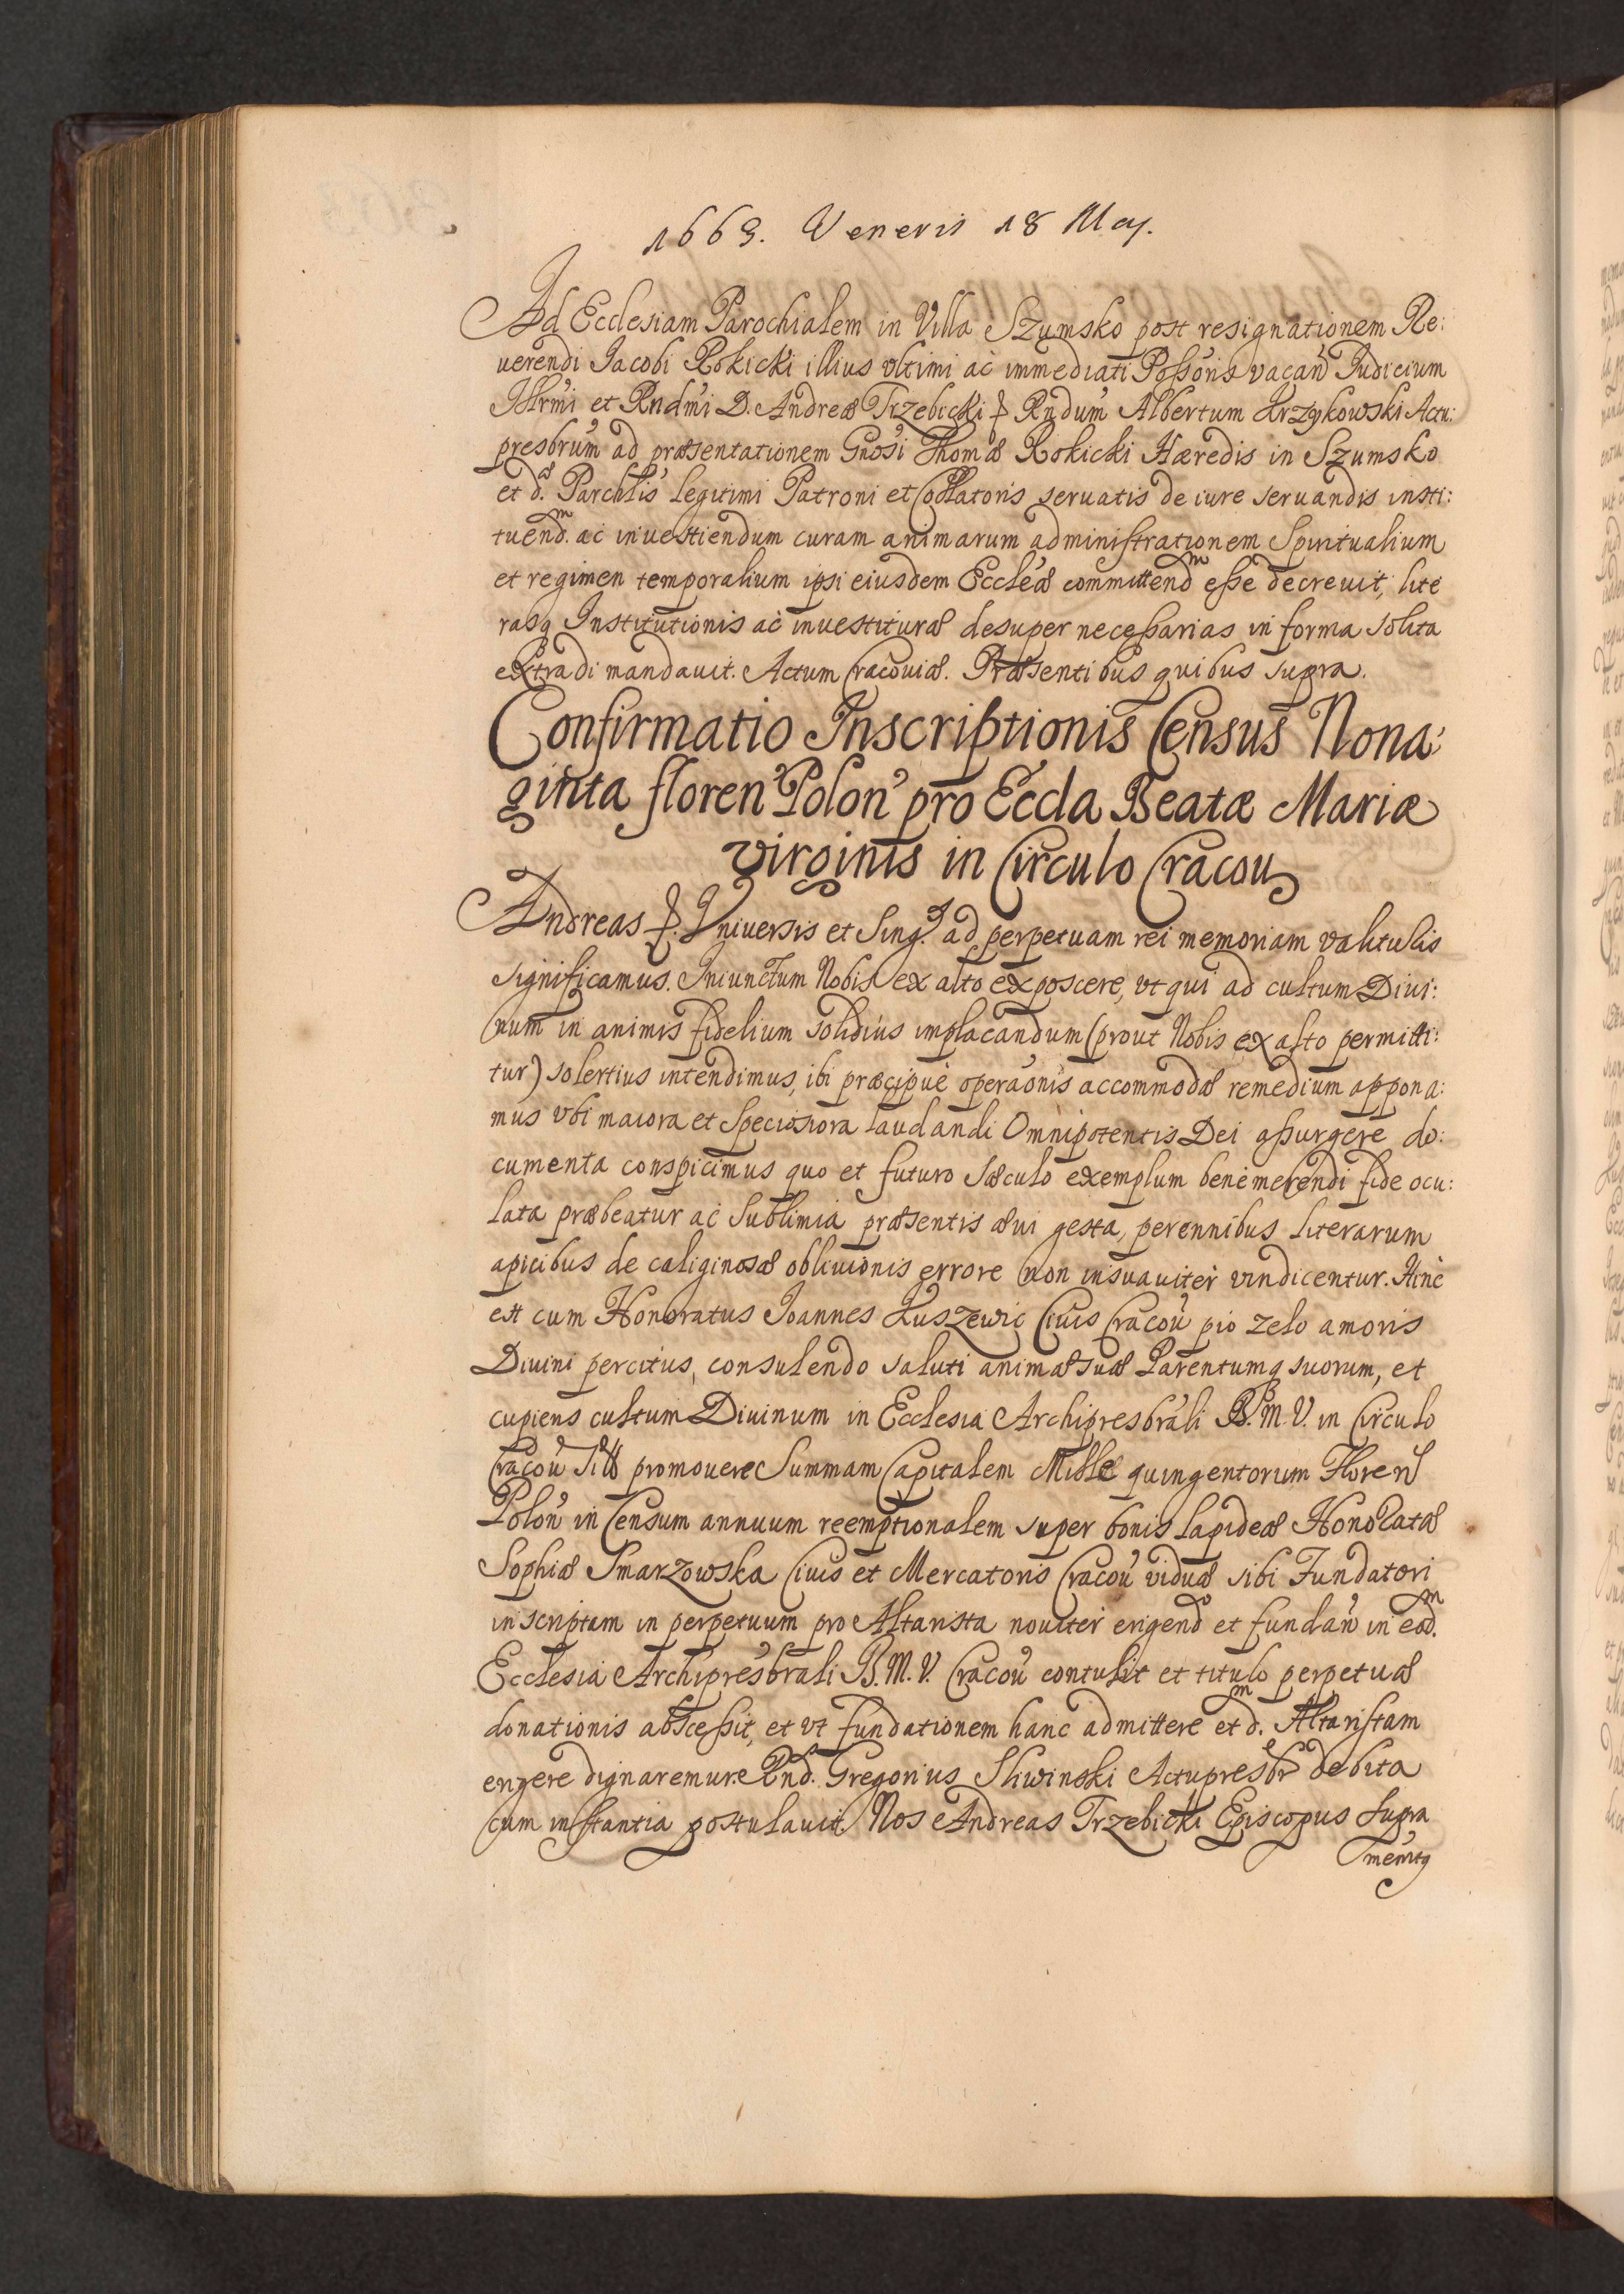 1663. Veneris 18 May.
Ad Ecclesiam Parochialem in Villa Szumsko post resignationem Re:
uerendi Jacobi Rokicki illius vltimi ac immediati Possoris vacan Judicium
Illrmi et Rndmi D. Andreæ Trzebicki Rndum Albertum Krzykowski Actu:
presbrum ad præsentationem Gnosi Thomæ Rokicki Hæredis in Szumsko
et d. Parchlis legitimi Patroni et Collatoris seruatis de iure seruandis insti:
tuend. ac inuestiendum curam animarum administrationem Spiritualium
et regimen temporalium ipsi eiusdem Eccleæ committend esse decreuit, lite
rasq Institutionis ac inuestituræ desuper necessarias in forma solita
extradi mandauit. Actum Cracouiæ. Præsentibus quibus supra.
Confirmatio Inscriptionis Census Nona:
ginta floren Polon pro Eccla Beatæ Mariæ
virginis in Circulo Cracou
Andreas Vniuersis et Sing. ad perpetuam rei memoriam valituris
significamus. Iniunctum Nobis ex alto exposcere, vt qui ad cultum Diui:
num in animis fidelium solidius implacandum (prout Nobis ex alto permitti:
tur) solertius intendimus, ibi præcipue operaonis accommodæ remedium appona:
mus vbi maiora et speciosiora laudandi Omnipotentis Dei assurgere do:
cumenta conspicimus quo et futuro sæculo exemplum benemerendi fide ocu:
lata præbeatur ac sublimia præsentis æui gesta, perennibus literarum
apicibus de caliginosæ obliuionis errore non insuauiter vindicentur. Hinc
est cum Honoratus Joannes Kuszewic Ciuis Cracou pio zelo amoris
Diuini percitus, consulendo saluti animæ suæ Parentumq suorum, et
cupiens cultum Diuinum in Ecclesia Archipresbrali B. M. V. in Circulo
Cracou promouere Summam Capitalem Mille quingentorum Floren
Polon in Censum annuum reemptionalem super bonis lapideæ Honoratæ
Sophiæ Smarzowska Ciuis et Mercatoris Cracou viduæ sibi Fundatori
inscriptam in perpetuum pro Altarista nouiter erigend et fundan in eod.
Ecclesia Archipresbrali B. M. V. Cracou contulit et titulo perpetuæ
donationis abscessit, et vt fundationem hanc admittere et d. Altaristam
erigere dignaremur. Rnd. Gregorius Sliwinski Actupresbr debita
cum instantia postulauit Nos Andreas Trzebicki Episcopus supra
memtq